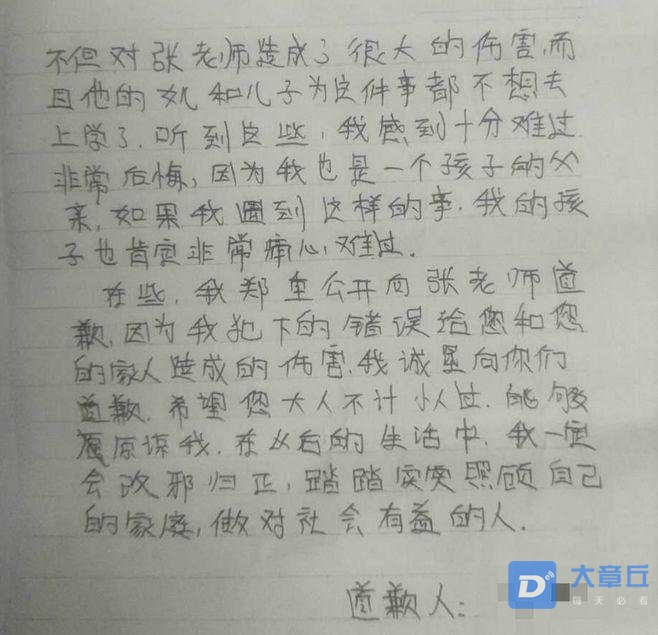 不但对张老师造成了很大的伤害,而
且他的女儿和儿子为这件事都不想去
上学了.听到这些,我感到十分难过.
非常后悔,因为我也是一个孩子的父
亲,如果我遇到这样的事.我的孩
子也肯定非常痛心,难过.
在些,我郑重公开向张老师道
歉,因为我犯下的错误给您和您
的家人造成的伤害.我诚垦向你们
道歉.希望您大人不计小人过.能够
原谅我.在以后的生活中.我一定
会改邪归正,踏踏实实照顾自己
的家庭,做对社会有益的人.
道歉人:
大章丘
每天必看